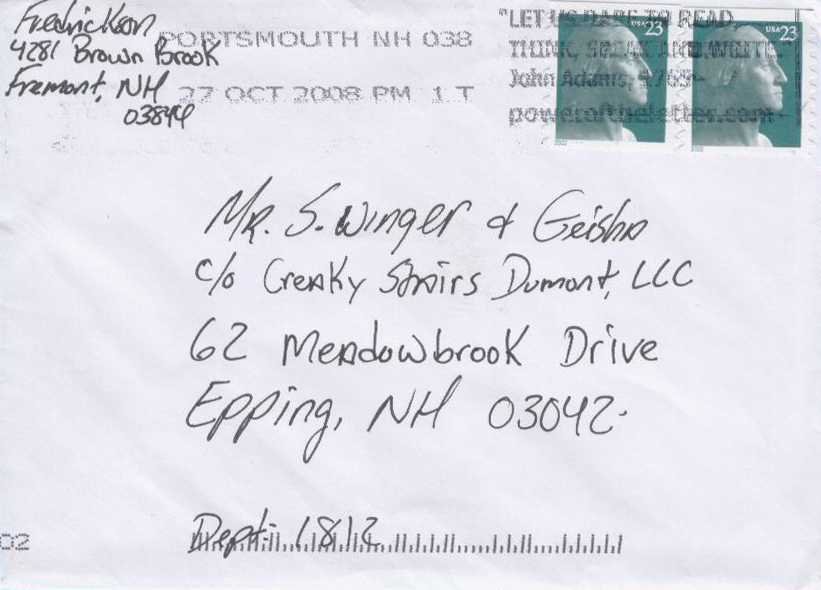 Fredrickson
4281 Brown Brook
Fremont, NH
03844
PORTSMOUTH NH 038
27 OCT 2008 PM 1 T
"LET US DARE TO READ,
THINK, SPEAK AND WRITE."
John Adams, 1765
poweroftheletter.com
USA 23
USA 23
2002
2002
Mr. S. Winger & Geisha
c/o Creaky Stairs Dumont, LLC
62 Meadowbrook Drive
Epping, NH 03042.
Dept: 1812
02